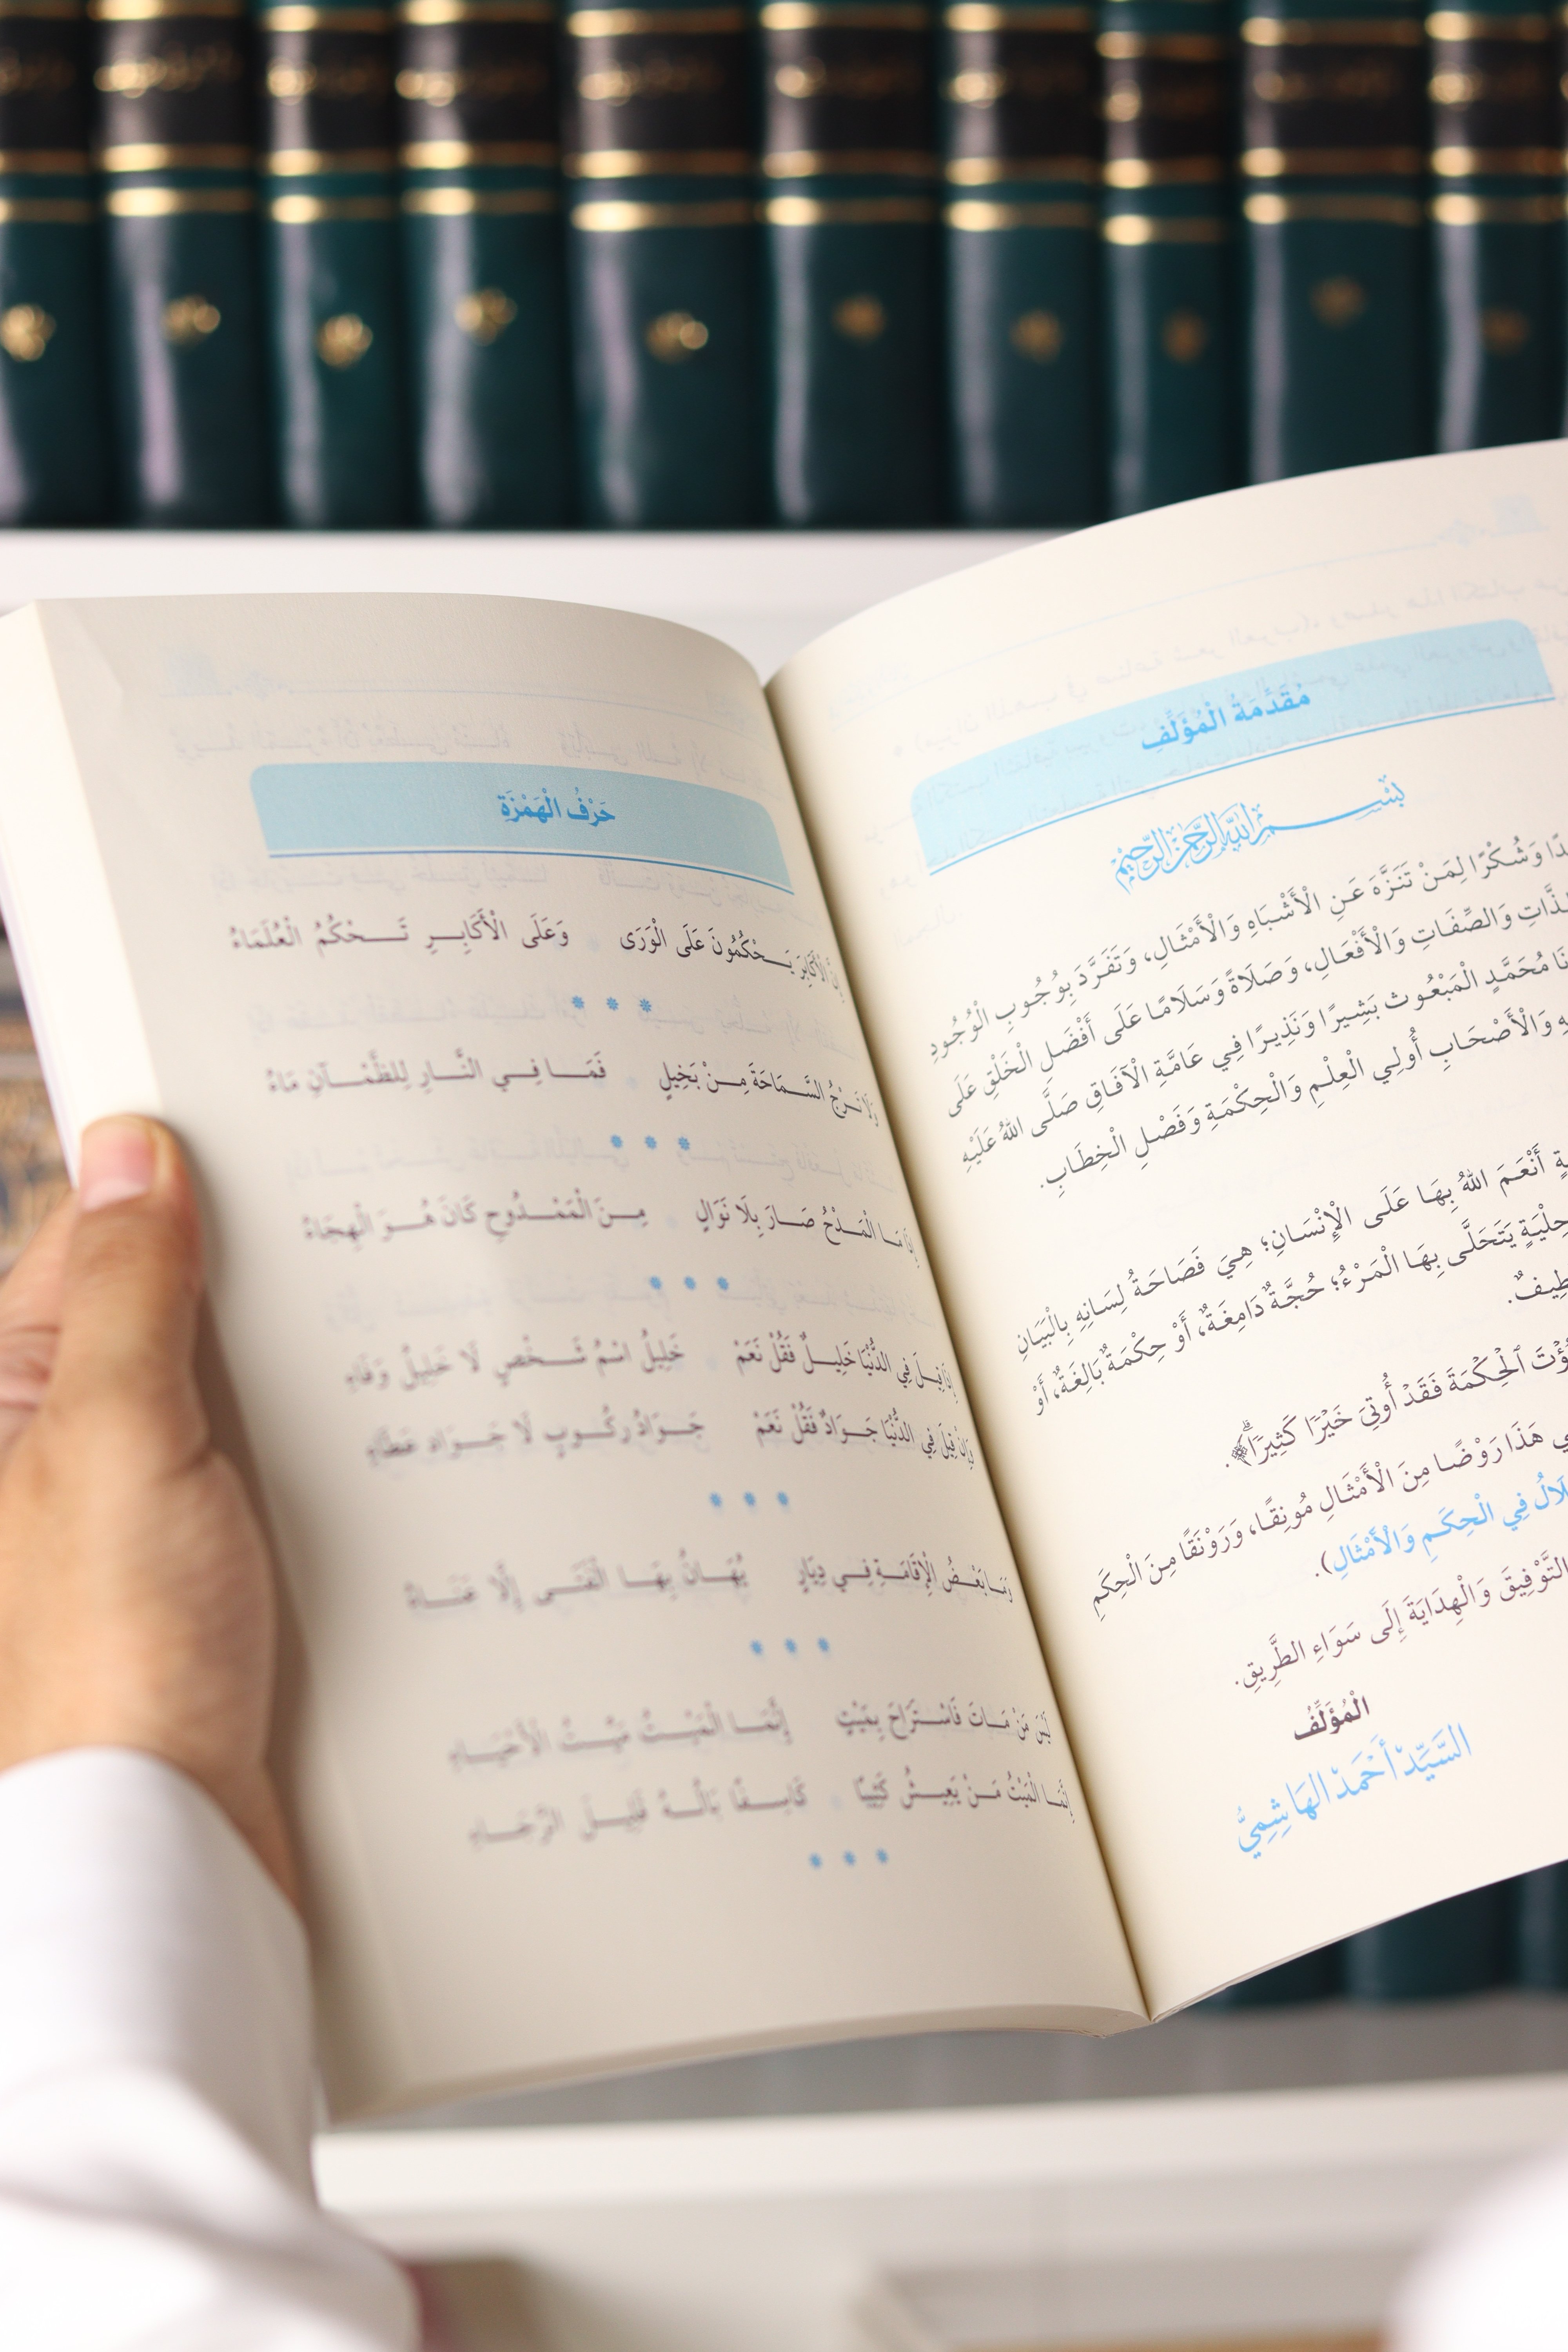 مُقَدِّمَةُ الْمُؤَلِّفِ
بِسْمِ اللهِ الرَّحْمَنِ الرَّحِيمِ
وَشُكْرًا لِمَنْ تَنَزَّهَ عَنِ الْأَشْبَاهِ وَالْأَمْثَالِ، وَتَفَرَّدَ بِوُجُوبِ الْوُجُودِ
وَالصِّفَاتِ وَالْأَفْعَالِ، وَصَلَاةً وَسَلَامًا عَلَى أَفْضَلِ الْخَلْقِ عَلَى
مُحَمَّدٍ الْمَبْعُوث بَشِيرًا وَنَذِيرًا فِي عَامَّةِ الْآفَاقِ صَلَّى اللهُ عَلَيْهِ
وَالْأَصْحَابِ أُولِي الْعِلْمِ وَالْحِكْمَةِ وَفَصْلِ الْخِطَابِ.
أَنْعَمَ اللهُ بِهَا عَلَى الْإِنْسَانِ؛ هِيَ فَصَاحَةُ لِسَانِهِ بِالْبَيَانِ
حِلْيَةٍ يَتَحَلَّى بِهَا الْمَرْءُ؛ حُجَّةٌ دَامِغَةٌ، أَوْ حِكْمَةٌ بَالِغَةٌ، أَوْ
ٱلْحِكْمَةَ فَقَدْ أُوتِيَ خَيْرًا كَثِيرًا﴾.
هَذَا رَوْضًا مِنَ الْأَمْثَالِ مُونِقًا، وَرَوْنَقًا مِنَ الْحِكَمِ
فِي الْحِكَمِ وَالْأَمْثَالِ).
التَّوْفِيقَ وَالْهِدَايَةَ إِلَى سَوَاءِ الطَّرِيقِ.
الْمُؤَلِّفُ
السَّيِّدُ أَحْمَدُ الهَاشِمِيُّ
حَرْفُ الْهَمْزَةِ
إِنَّ الْأَكَابِرَ يَـحْكُمُونَ عَلَى الْوَرَى * وَعَلَى الْأَكَابِـرِ تَـحْكُمُ الْعُلَمَاءُ
* * *
وَلَا تَرْجُ السَّمَاحَةَ مِنْ بَخِيلٍ * فَمَا فِي النَّارِ لِلظَّمْآنِ مَاءُ
* * *
إِذَا مَا الْمَدْحُ صَارَ بِلَا نَوَالٍ * مِنَ الْمَمْدُوحِ كَانَ هُوَ الْهِجَاءُ
* * *
إِذَا قِيلَ فِي الدُّنْيَا خَلِيلٌ فَقُلْ نَعَمْ * خَلِيلُ اسْمُ شَخْصٍ لَا خَلِيلُ وَفَاءِ
وَإِنْ قِيلَ فِي الدُّنْيَا جَوَادٌ فَقُلْ نَعَمْ جَوَادُ رُكُوبٍ لَا جَوَادِ عَطَاءِ
* * *
وَمَا بَعْضُ الْإِقَامَةِ فِي دِيَارٍ يُهَانُ بِهَا الْفَتَى إِلَّا عَنَاءُ
* * *
لَيْسَ مَنْ مَاتَ فَاسْتَرَاحَ بِمَيْتٍ إِنَّمَا الْمَيْتُ مَيِّتُ الْأَحْيَاءِ
إِنَّمَا الْمَيْتُ مَنْ يَعِيشُ كَئِيبًا * كَاسِفًا بَالُهُ قَلِيلَ الرَّجَاءِ
* * *